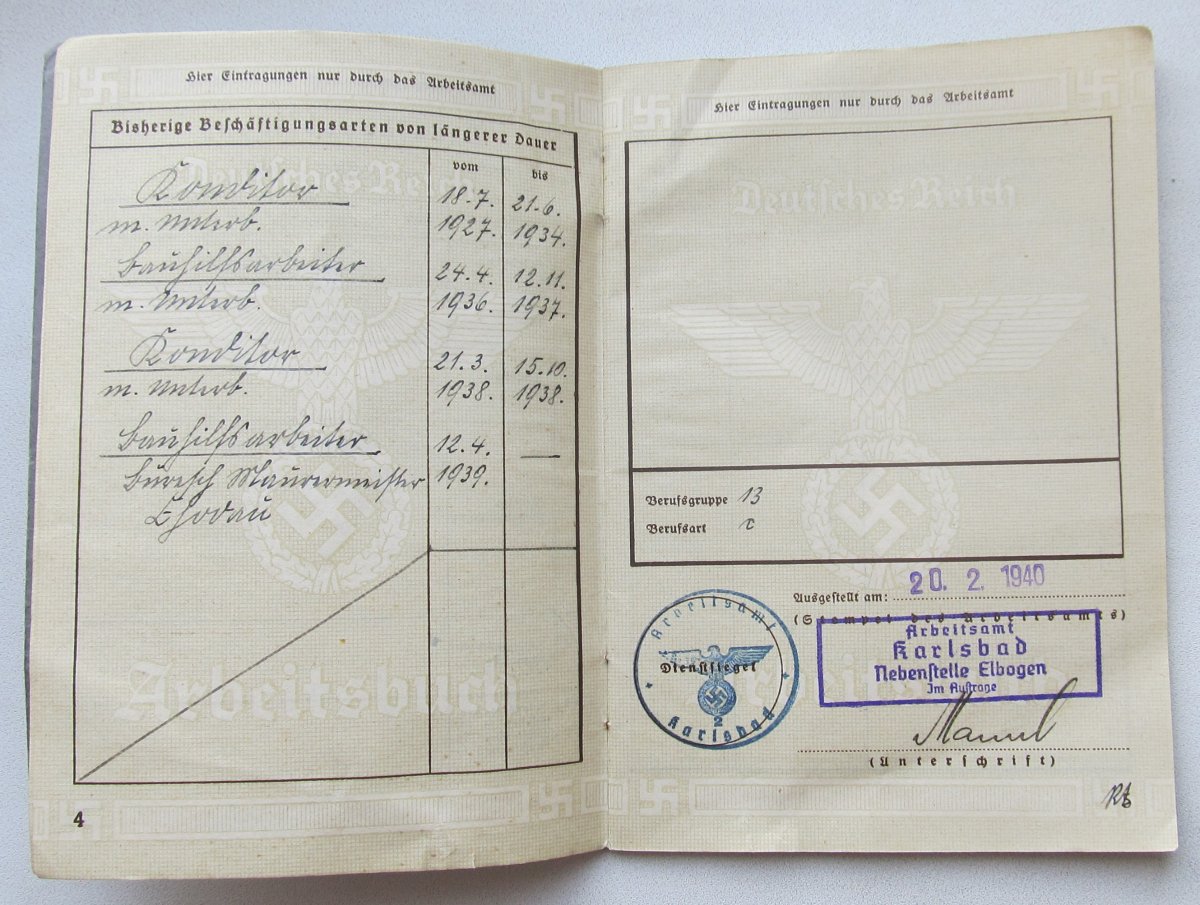 Hier Eintragungen nur durch das Arbeitsamt
Bisherige Beschäftigungsarten von längerer Dauer
vom
bis
Deutsches Reich
Konditor
18.7.
21.6.
m. Unterb.
1927.
1934.
Bauhilfsarbeiter
24.4.
12.11.
m. Unterb.
1936.
1937.
Konditor
21.3.
15.10.
m. Unterb.
1938.
1938.
Bauhilfsarbeiter
12.4.
—
Buresch Maurermeister
1939.
Chodau
Arbeitsbuch
4
Hier Eintragungen nur durch das Arbeitsamt
Deutsches Reich
Berufsgruppe 13
Berufsart c
Ausgestellt am: 20. 2. 1940
(Stempel des Arbeitsamts)
Arbeitsamt
Karlsbad
Nebenstelle Elbogen
Im Auftrage
Arbeitsamt
Dienstsiegel
2
Karlsbad
Arbeitsbuch
(Unterschrift)